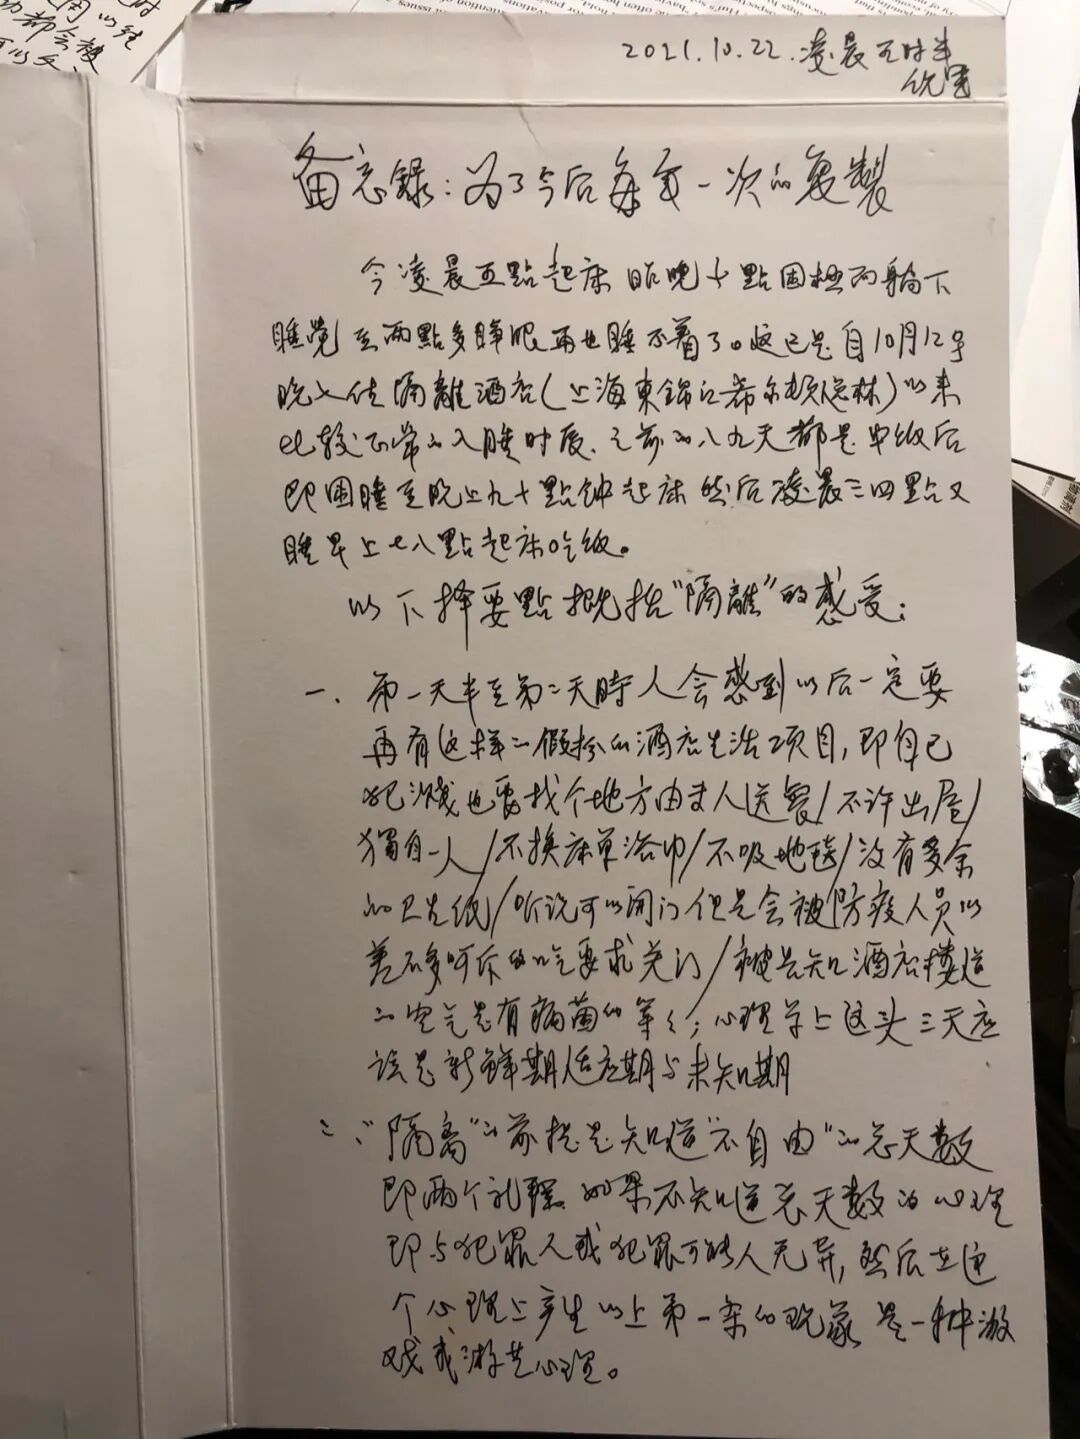 2021.10.22.凌晨五时半
备忘錄：为了今后每一次的复製
今凌晨五點起床 昨晚十點困極而躺下
睡觉至兩點多睁眼再也睡不着了。这已是自10月12号
晚入住隔離酒店(上海東錦江希尔顿逸林)以来
比較正常的入睡时辰.之前的八九天都是早饭后
即困睡至晚上九十點钟起床 然后凌晨三四點又
睡早上七八點起床吃饭。
以下择要點概括“隔離”的感受：
一、第一天半至第二天時人会感到以后一定要
再有这样的假扮的酒店生活项目，即自己
犯贱也要找个地方由专人送餐/不许出屋/
獨自一人/不换床单浴巾/不吸地毯/没有多余
的卫生纸/听说可以闭门但是会被防疫人员以
差不多呵斥的口吃要求关门/被告知酒店楼道
的空气是有病菌的等等；心理学上这头三天应
该是新鲜期适应期与未知期
二、“隔离”的前提是知道“不自由”的总天数
即兩个礼拜.如果不知道总天数的心理
即与犯罪人或犯罪可能人无异，然后在这
个心理上产生以上第一条的现象 是一种游
戏或游艺心理。